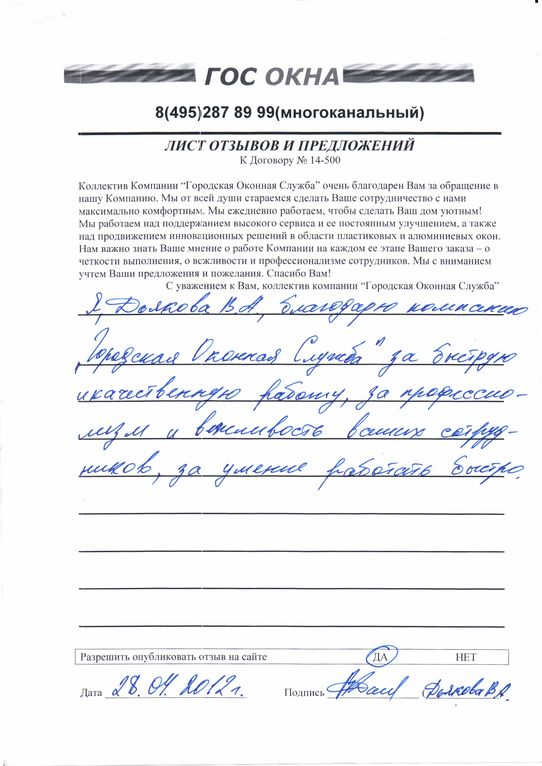 ГОС ОКНА
8(495)287 89 99(многоканальный)
ЛИСТ ОТЗЫВОВ И ПРЕДЛОЖЕНИЙ
К Договору № 14-500
Коллектив Компании “Городская Оконная Служба” очень благодарен Вам за обращение в
нашу Компанию. Мы от всей души стараемся сделать Ваше сотрудничество с нами
максимально комфортным. Мы ежедневно работаем, чтобы сделать Ваш дом уютным!
Мы работаем над поддержанием высокого сервиса и ее постоянным улучшением, а также
над продвижением инновационных решений в области пластиковых и алюминиевых окон.
Нам важно знать Ваше мнение о работе Компании на каждом ее этапе Вашего заказа – о
четкости выполнения, о вежливости и профессионализме сотрудников. Мы с вниманием
учтем Ваши предложения и пожелания. Спасибо Вам!
С уважением к Вам, коллектив компании “Городская Оконная Служба”
Я, Дьякова В.А., благодарю компанию
„Городская Оконная Служба" за быструю
и качественную работу, за профессио-
лизм и вежливость ваших сотруд-
ников, за умение работать быстро.
Разрешить опубликовать отзыв на сайте ДА НЕТ
Дата 28.04.2012г. Подпись (Дьякова В.А.